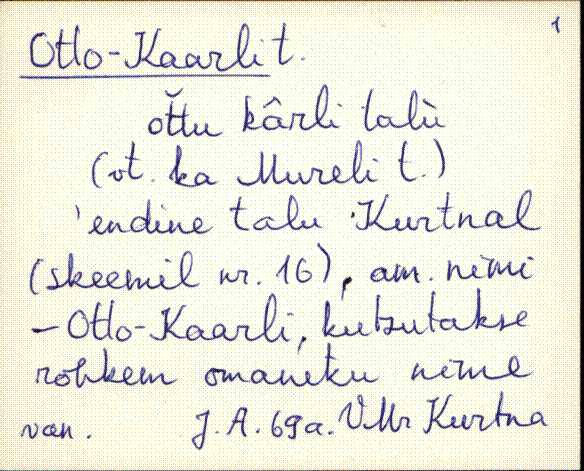 1
Otto-Kaarli t.
ŏttu kârli talù
(vt. ka Mureli t.)
'endine talu Kurtnal
(skeemil nr. 16), am. nimi
– Otto-Kaarli, kutsutakse
rohkem omaniku nime
van. J. A. 69a. VMr Kurtna